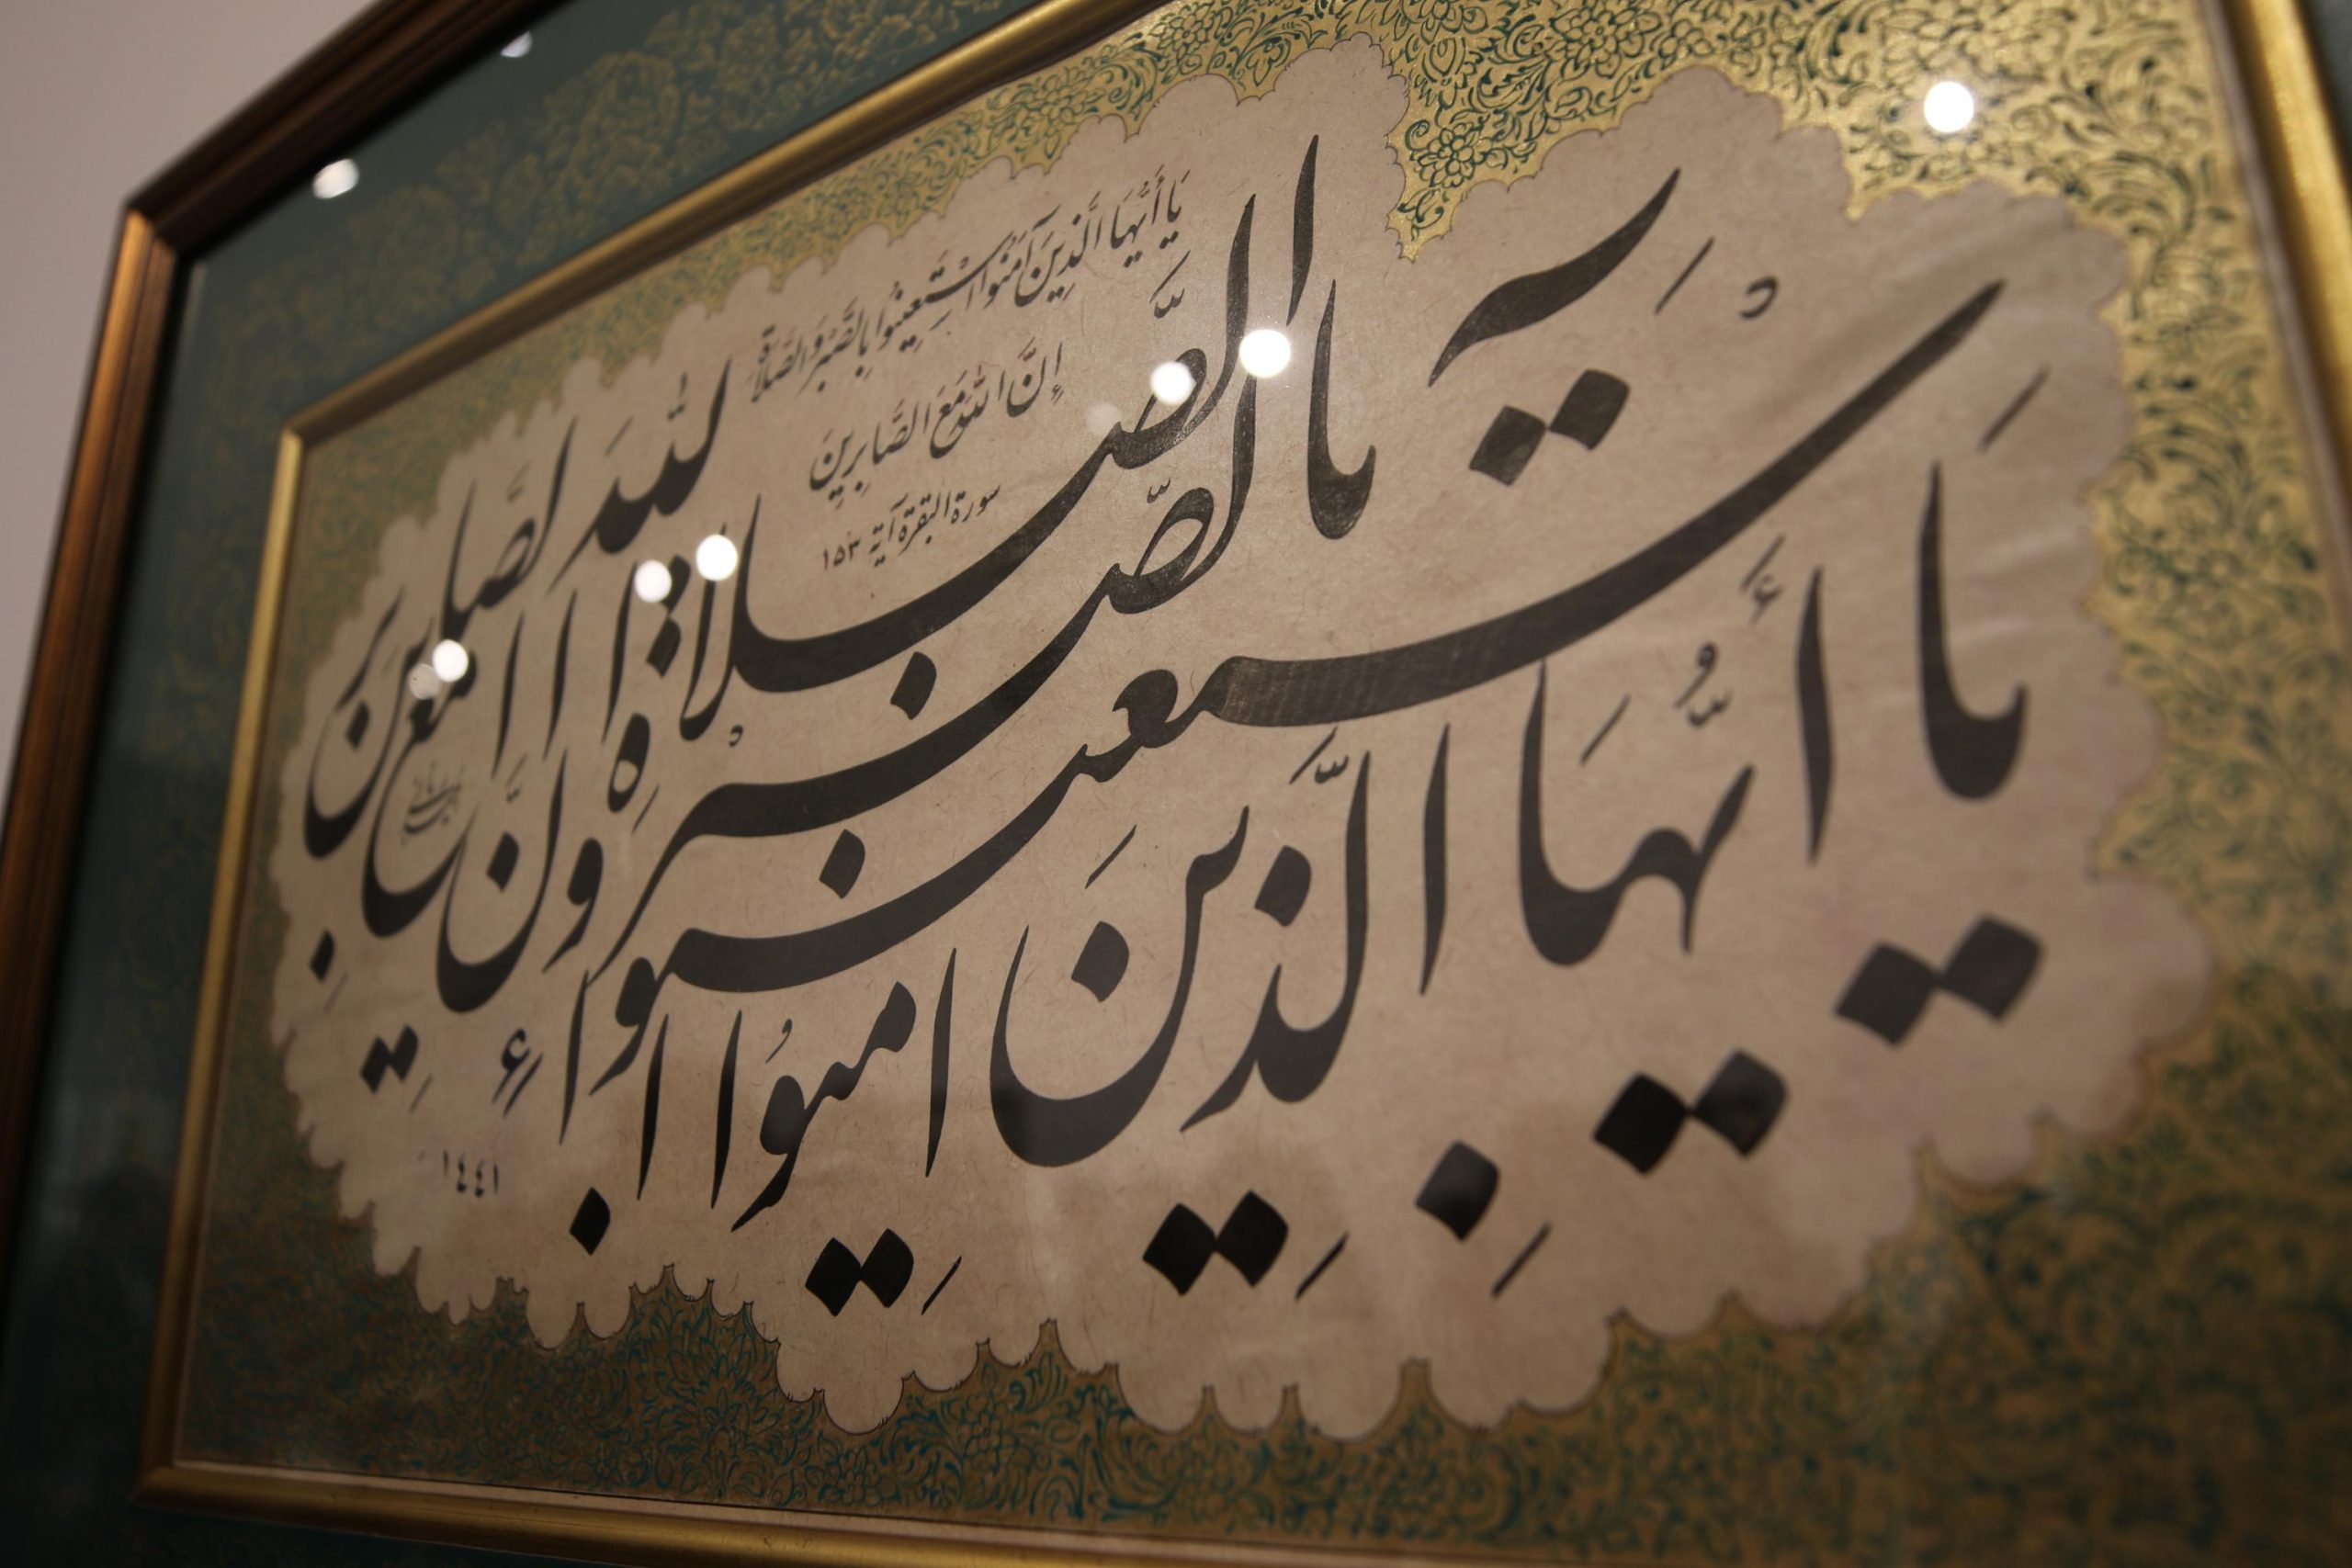 يَا أَيُّهَا الَّذِينَ آمَنُوا اسْتَعِينُوا بِالصَّبْرِ وَالصَّلَاةِ
إِنَّ اللَّهَ مَعَ الصَّابِرِينَ
سورة البقرة آية ١٥٣
يَا أَيُّهَا الَّذِينَ امِنُوا اسْتَعِينُوا بِالصَّبر وَالصَّلَاةِ إِنَّ اللّٰهَ مَعَ الصَّابِرين
١٤٤١